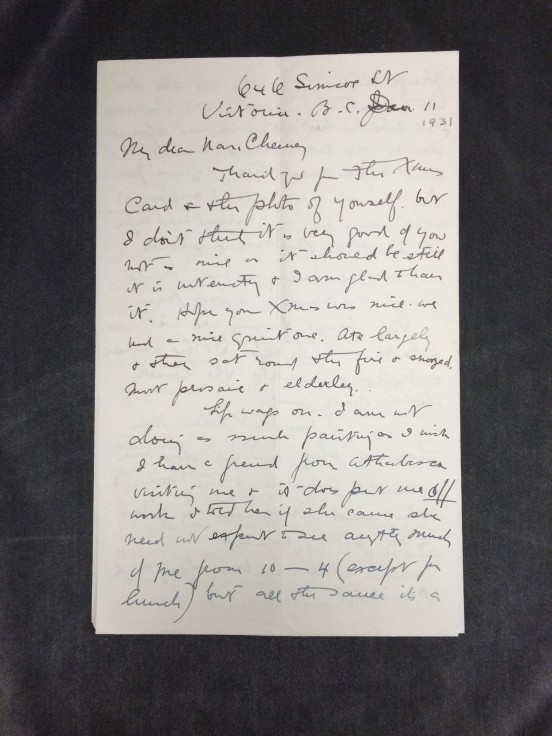 646 Simcoe St
Victoria. B.C. Jan 11
1931
My dear Nan Cheney
Thank you for the Xmas
Card & the photo of yourself. but
I don't think it is very good of you
not as nice as it should be still
it is & I am glad to have
it. Hope your Xmas was nice. we
had a nice quiet one. Ate largely
& then sat round the fire & snoozed.
most prosaic & elderley..
Life wags on. I am not
doing as much painting as I wish
I have a friend from Athabasca
visiting me & it does put me off
work I told her if she came she
need not expect to see anything much
of me from 10 — 4 (except for
lunch) but all the same its a